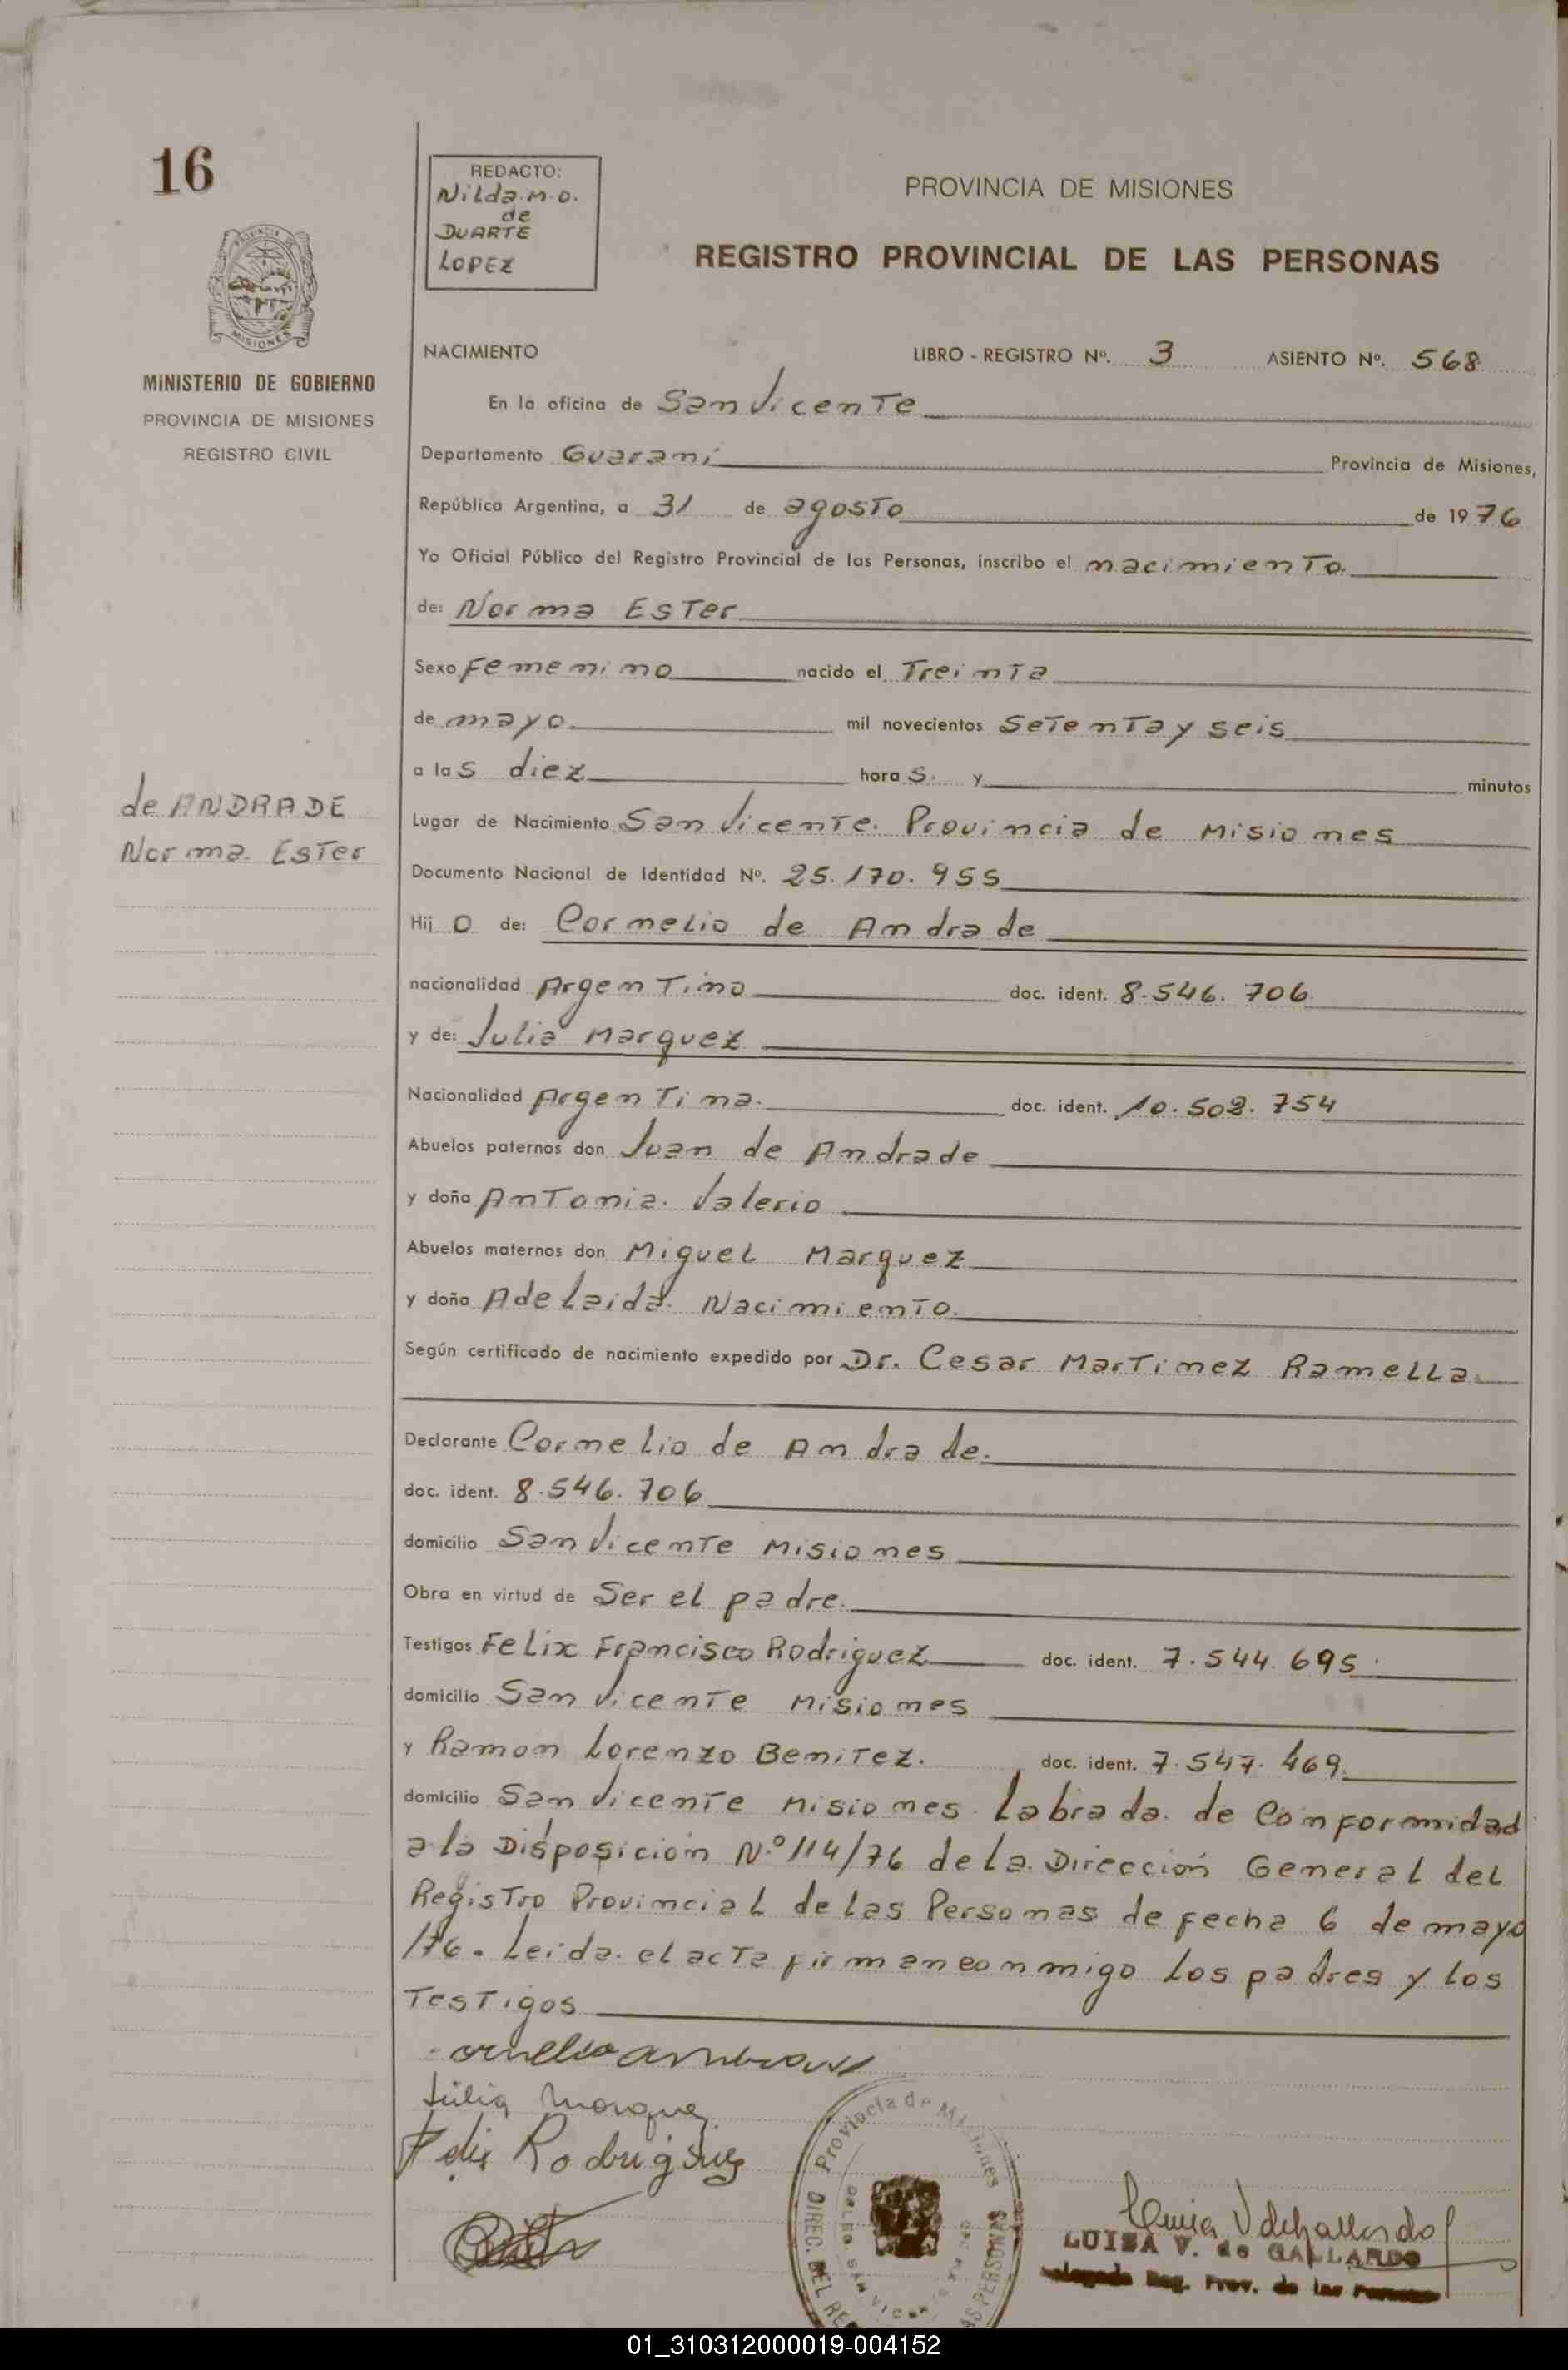 16
REDACTO:
Nilda.M.O.
de
DUARTE
LOPEZ
PROVINCIA DE MISIONES
REGISTRO PROVINCIAL DE LAS PERSONAS
MISIONES
MINISTERIO DE GOBIERNO
PROVINCIA DE MISIONES
REGISTRO CIVIL
NACIMIENTO LIBRO - REGISTRO Nº. 3 ASIENTO Nº. 568
En la oficina de San Vicente
Departamento Guaraní Provincia de Misiones,
República Argentina, a 31 de agosto de 1976
Yo Oficial Público del Registro Provincial de las Personas, inscribo el nacimiento.
de: Norma Ester
Sexo Femenino nacido el Treinta
de mayo mil novecientos Setenta y seis
a las diez horas. y minutos
de ANDRADE
Norma. Ester
Lugar de Nacimiento San Vicente. Provincia de Misiones
Documento Nacional de Identidad Nº. 25.170.955
Hij o de: Cornelio de Andrade
nacionalidad Argentino doc. ident. 8.546.706
y de: Julia Marquez
Nacionalidad Argentina. doc. ident. 10.502.754
Abuelos paternos don Juan de Andrade
y doña Antonia. Valerio
Abuelos maternos don Miguel Marquez
y doña Adelaida. Nacimiento.
Según certificado de nacimiento expedido por Dr. Cesar Martinez Ramella.
Declarante Cornelio de Andrade.
doc. ident. 8.546.706
domicilio San Vicente Misiones
Obra en virtud de Ser el padre.
Testigos Felix Francisco Rodriguez doc. ident. 7.544.695.
domicilio San Vicente Misiones
y Ramon Lorenzo Benitez. doc. ident. 7.547.469.
domicilio San Vicente Misiones. Labrada. de Conformidad
a la Disposición N.º 114/76 de la. Dirección General del
Registro Provincial de las Personas de fecha 6 de mayo
/76. Leida. el acta firman conmigo los padres y los
Testigos
Julia Marquez
Felix Rodriguez
Provincia de Misiones
DIREC. DEL RE
AS PERSONAS
DELEG. SAN VICENTE
Luisa V de Gallardo
LUISA V. de GALLARDO
Delegada Reg. Prov. de las Personas
01_310312000019-004152